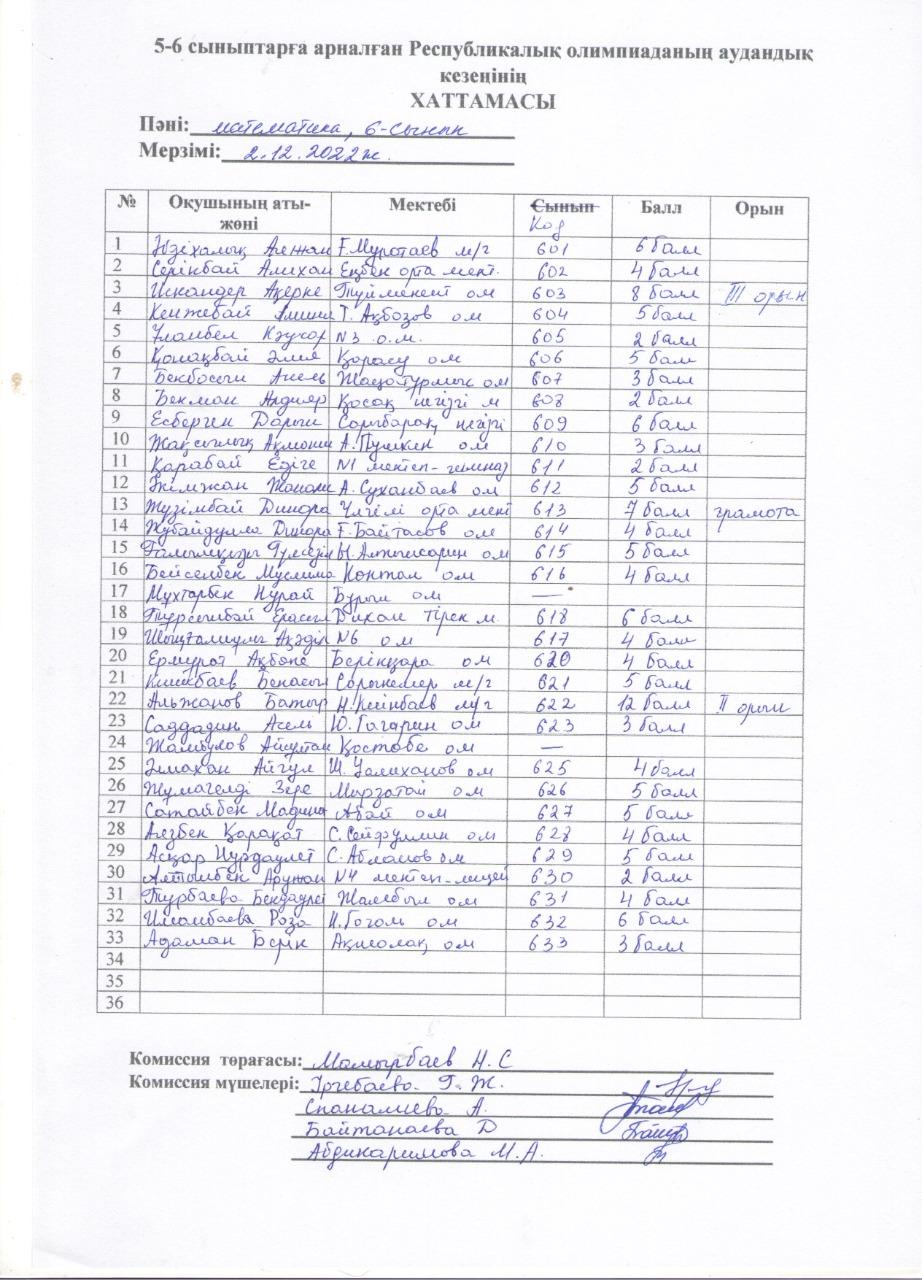 5-6 сыныптарға арналған Республикалық олимпиаданың аудандық
кезеңінің
ХАТТАМАСЫ
Пәні: математика, 6-сынып
Мерзімі: 2.12.2022ж.
№ Оқушының аты-жөні Мектебі Сынып Код Балл Орын
1 Әзіхалық Ғ.Муротаев м/г 601 6 балл
2 Серікбай Алихан Еңбек орта мект. 602 4 балл
3 Искандер Ақерке Түйменкент ом 603 8 балл III орын
4 Кенжебай Т. Ақбозов ом 604 5 балл
5 Ұланбек Кәусар N3 о.м. 605 2 балл
6 Қонақбай Әлия Қарасу ом 606 5 балл
7 Бекбосын Асель Жаңатұрмыс ом 607 3 балл
8 Бекман Алдияр Қосақ негізгі м 608 2 балл
9 Есберген Дарын Сарыбарақ негізгі 609 6 балл
10 Жақсылық А.Пушкин ом 610 3 балл
11 Қарабай Едіге N1 мектеп-гимназ 611 2 балл
12 Әкімжан А.Суханбаев ом 612 5 балл
13 Жүзімбай Динара Үлгілі орта мект 613 7 балл грамота
14 Жұбайдулла Динара Ғ.Байтасов ом 614 4 балл
15 Ы.Алтынсарин ом 615 5 балл
16 Бейсенбек Муслима Көктал ом 616 4 балл
17 Мұхтарбек Нұрай Бурыл ом —
18 Тұрсынбай Ерасыл Дихан тірек м. 618 6 балл
19 N6 ом 617 4 балл
20 Ермурат Ақбөпе Берікқара ом 620 4 балл
21 Сарыкемер м/г 621 5 балл
22 Альжанов Батыр 622 12 балл II орын
23 Саддадин Асель Ю.Гагарин ом 623 3 балл
24 Қостөбе ом —
25 Әлмахан Айгүл Ш.Уалиханов ом 625 4 балл
26 Жұмагелді Зере Мырзатай ом 626 5 балл
27 Сатайбек Мадина Абай ом 627 5 балл
28 Аязбек Қарақат С.Сейфуллин ом 628 4 балл
29 Асқар Нұрдаулет С.Абланов ом 629 5 балл
30 Алтынбек Аружан N4 мектеп-лицей 630 2 балл
31 Турбаева Бекдәулет Жамбыл ом 631 4 балл
32 Илсанбаева Роза Н.Гоголь ом 632 6 балл
33 Адаман Берік Ақшолақ ом 633 3 балл
34
35
36
Комиссия төрағасы: Мамырбаев Н.С
Комиссия мүшелері: Үргебаева Г.Ж.
Спаналиева А.
Байтанаева Д
Абдикаримова М.А.